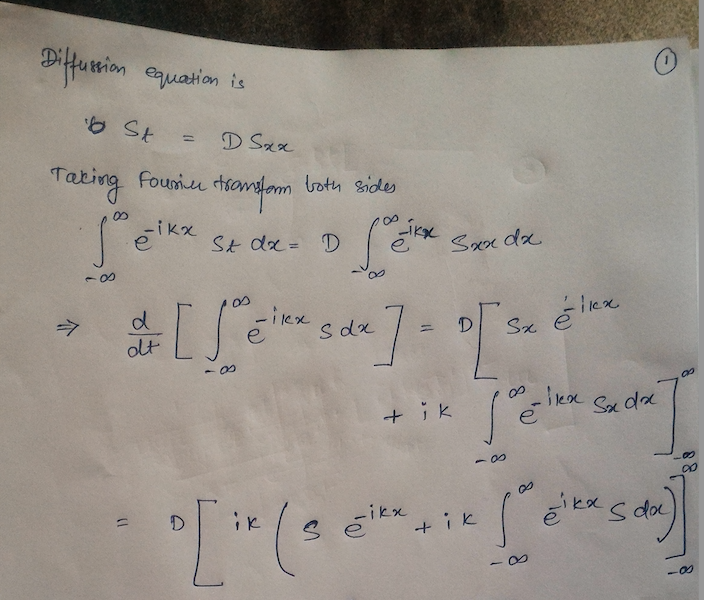 ①
Diffussion equation is
St = D Sxx
Taking Fourier transform both sides
∫_{-∞}^{∞} e^{-ikx} St dx = D ∫_{-∞}^{∞} e^{-ikx} Sxx dx
⇒ d/dt [ ∫_{-∞}^{∞} e^{-ikx} S dx ] = D [ Sx e^{-ikx}
+ ik ∫_{-∞}^{∞} e^{-ikx} Sx dx ]_{-∞}^{∞}
= D [ ik ( S e^{-ikx} + ik ∫_{-∞}^{∞} e^{-ikx} S dx ) ]_{-∞}^{∞}